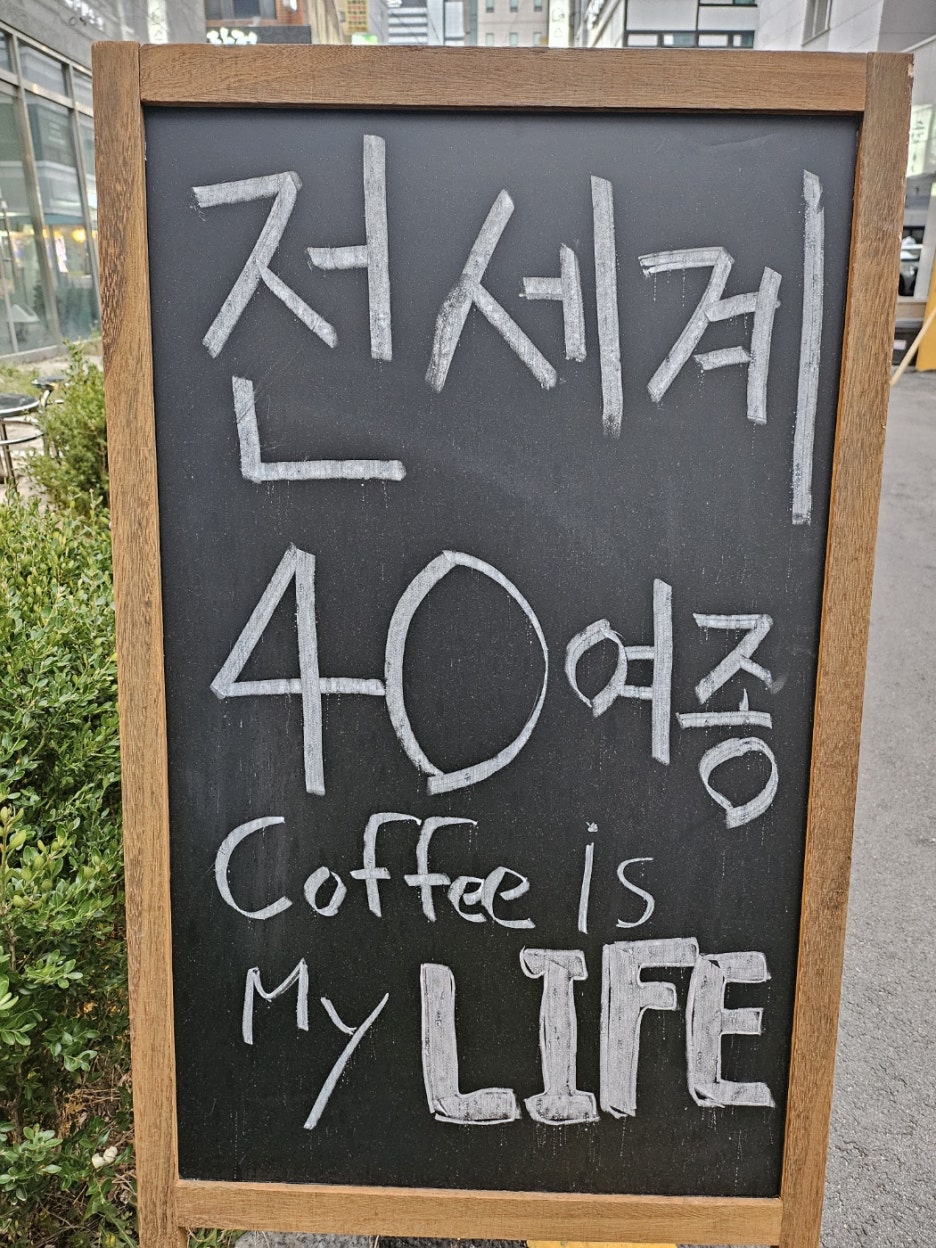 전세계
40여종
Coffee is
My LIFE